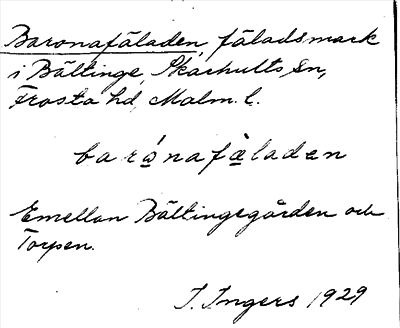 Baronafäladen, fäladsmark
i Bältinge, Skarhults sn,
Frosta hd, Malm. l.
barónafǝ̀laden
Emellan Bältingegården och
Torpen.
I. Ingers 1929